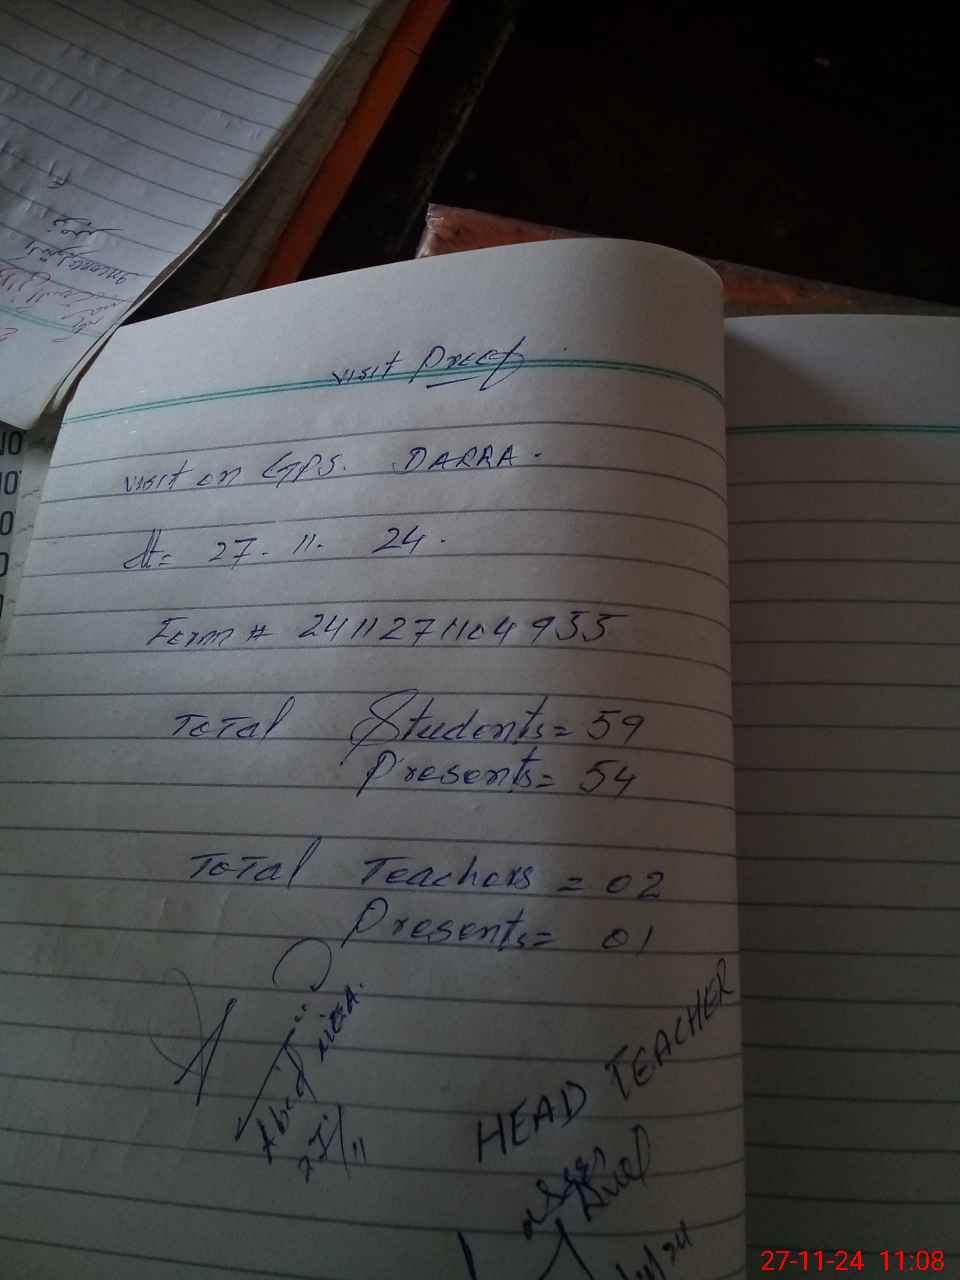 visit Proof
visit on GPS. DARRA.
dt= 27. 11. 24.
Form # 2411271104935
Total Students= 59
Presents= 54
Total Teachers = 02
Presents= 01
27/11
HEAD TEACHER
27-11-24 11:08